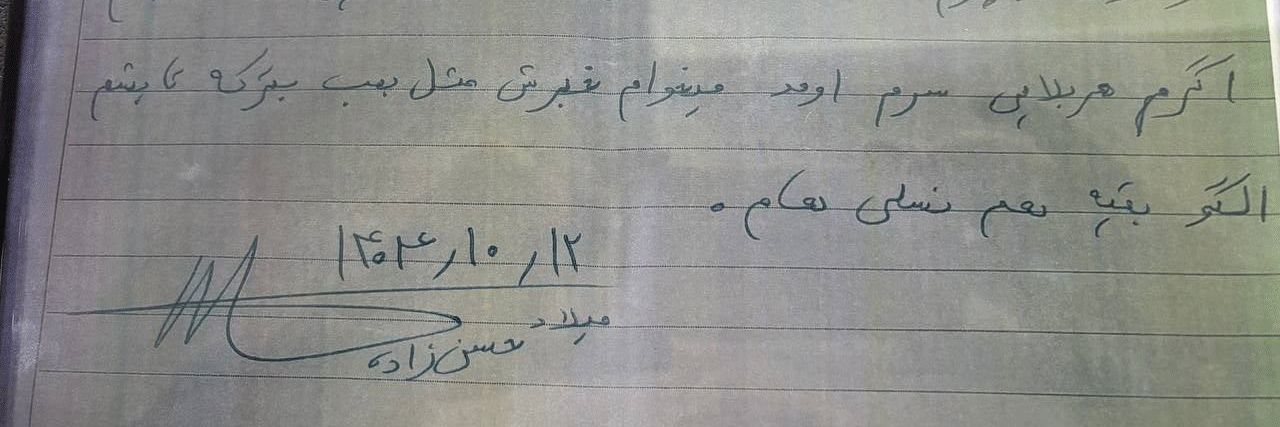 اگرم هربلایی سرم اومد میخوام خبرش مثل بمب بترکه تا بشم
الگو بقیه هم نسلی هام.
۱۴۰۴,۱۰,۱۲
میلاد حسن‌زاده